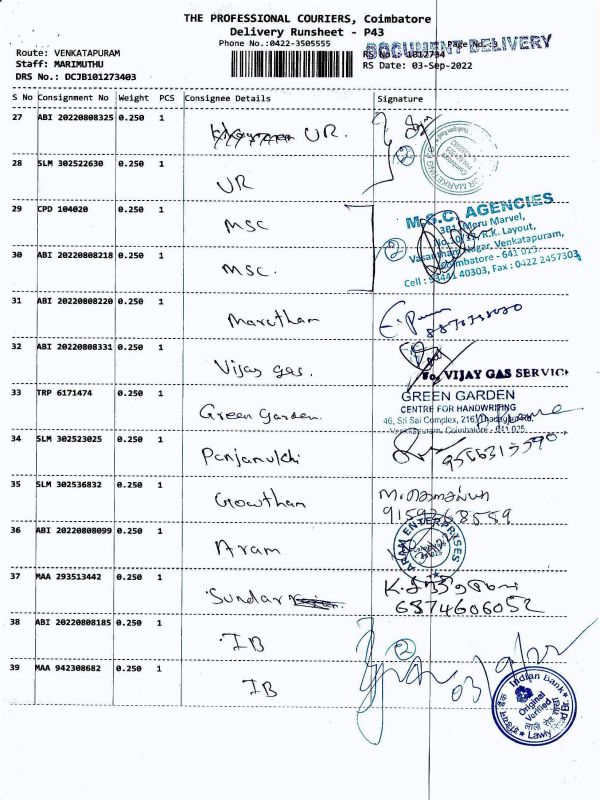 THE PROFESSIONAL COURIERS, Coimbatore
Delivery Runsheet - P43
Phone No.:0422-3505555
Page No. 3
DOCUMENT DELIVERY
Route: VENKATAPURAM
RS No.: 1012734
Staff: MARIMUTHU
RS Date: 03-Sep-2022
DRS No.: DCJB101273403
S No Consignment No Weight PCS Consignee Details Signature
27 ABI 20220808325 0.250 1 UR.
28 SLM 302522630 0.250 1 UR
29 CPD 104020 0.250 1 MSC
M.S.C. AGENCIES
381, Meru Marvel,
R.K. Layout,
Nagar, Venkatapuram,
Coimbatore - 641 025.
Cell : 93441 40303, Fax : 0422 2457303
30 ABI 20220808218 0.250 1 MSC.
31 ABI 20220808220 0.250 1 Marutham
32 ABI 20220808331 0.250 1 Vijay gas.
For VIJAY GAS SERVICE
33 TRP 6171474 0.250 1 Green Garden.
GREEN GARDEN
CENTRE FOR HANDWRITING
46, Sri Sai Complex, 216,
Venkatapuram, Coimbatore - 641 025.
34 SLM 302523025 0.250 1 Panjamukhi
35 SLM 302536832 0.250 1 Gowtham
9159268559
36 ABI 20220808099 0.250 1 Aram
ARAM ENTERPRISES
37 MAA 293513442 0.250 1 Sundar
6874606052
38 ABI 20220808185 0.250 1 IB
2
39 MAA 942308682 0.250 1 IB
Indian Bank
Original
Verified
Lawly